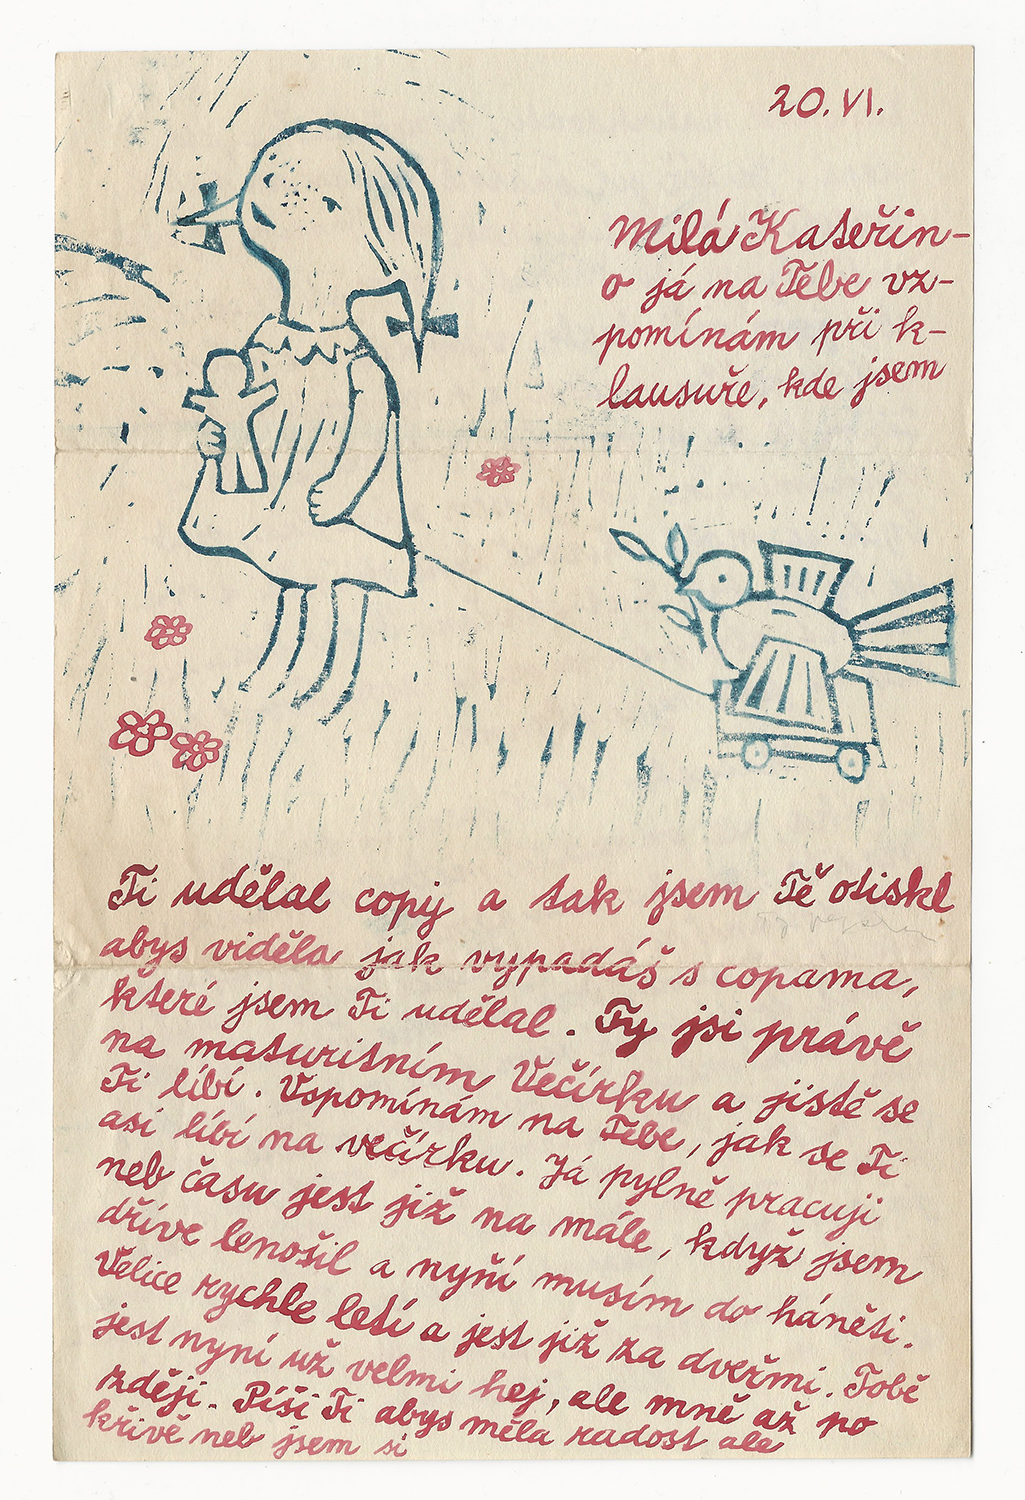 20. VI.
Milá Kateřin-
o já na Tebe vz-
pomínám při k-
lausuře, kde jsem
Ti udělal copy a tak jsem Tě otiskl
abys viděla jak vypadáš s copama,
které jsem Ti udělal. Ty jsi právě
na maturitním Večírku a jistě se
Ti líbí. Vspomínám na Tebe, jak se Ti
asi líbí na večírku. Já pylně pracuji
neb času jest již na mále, když jsem
dříve lenošil a nyňí musím do háněti.
Velice rychle letí a jest již za dveřmi. Tobě
jest nyní už velmi hej, ale mně až po
zději. Píši Ti abys měla radost ale
křivě neb jsem si